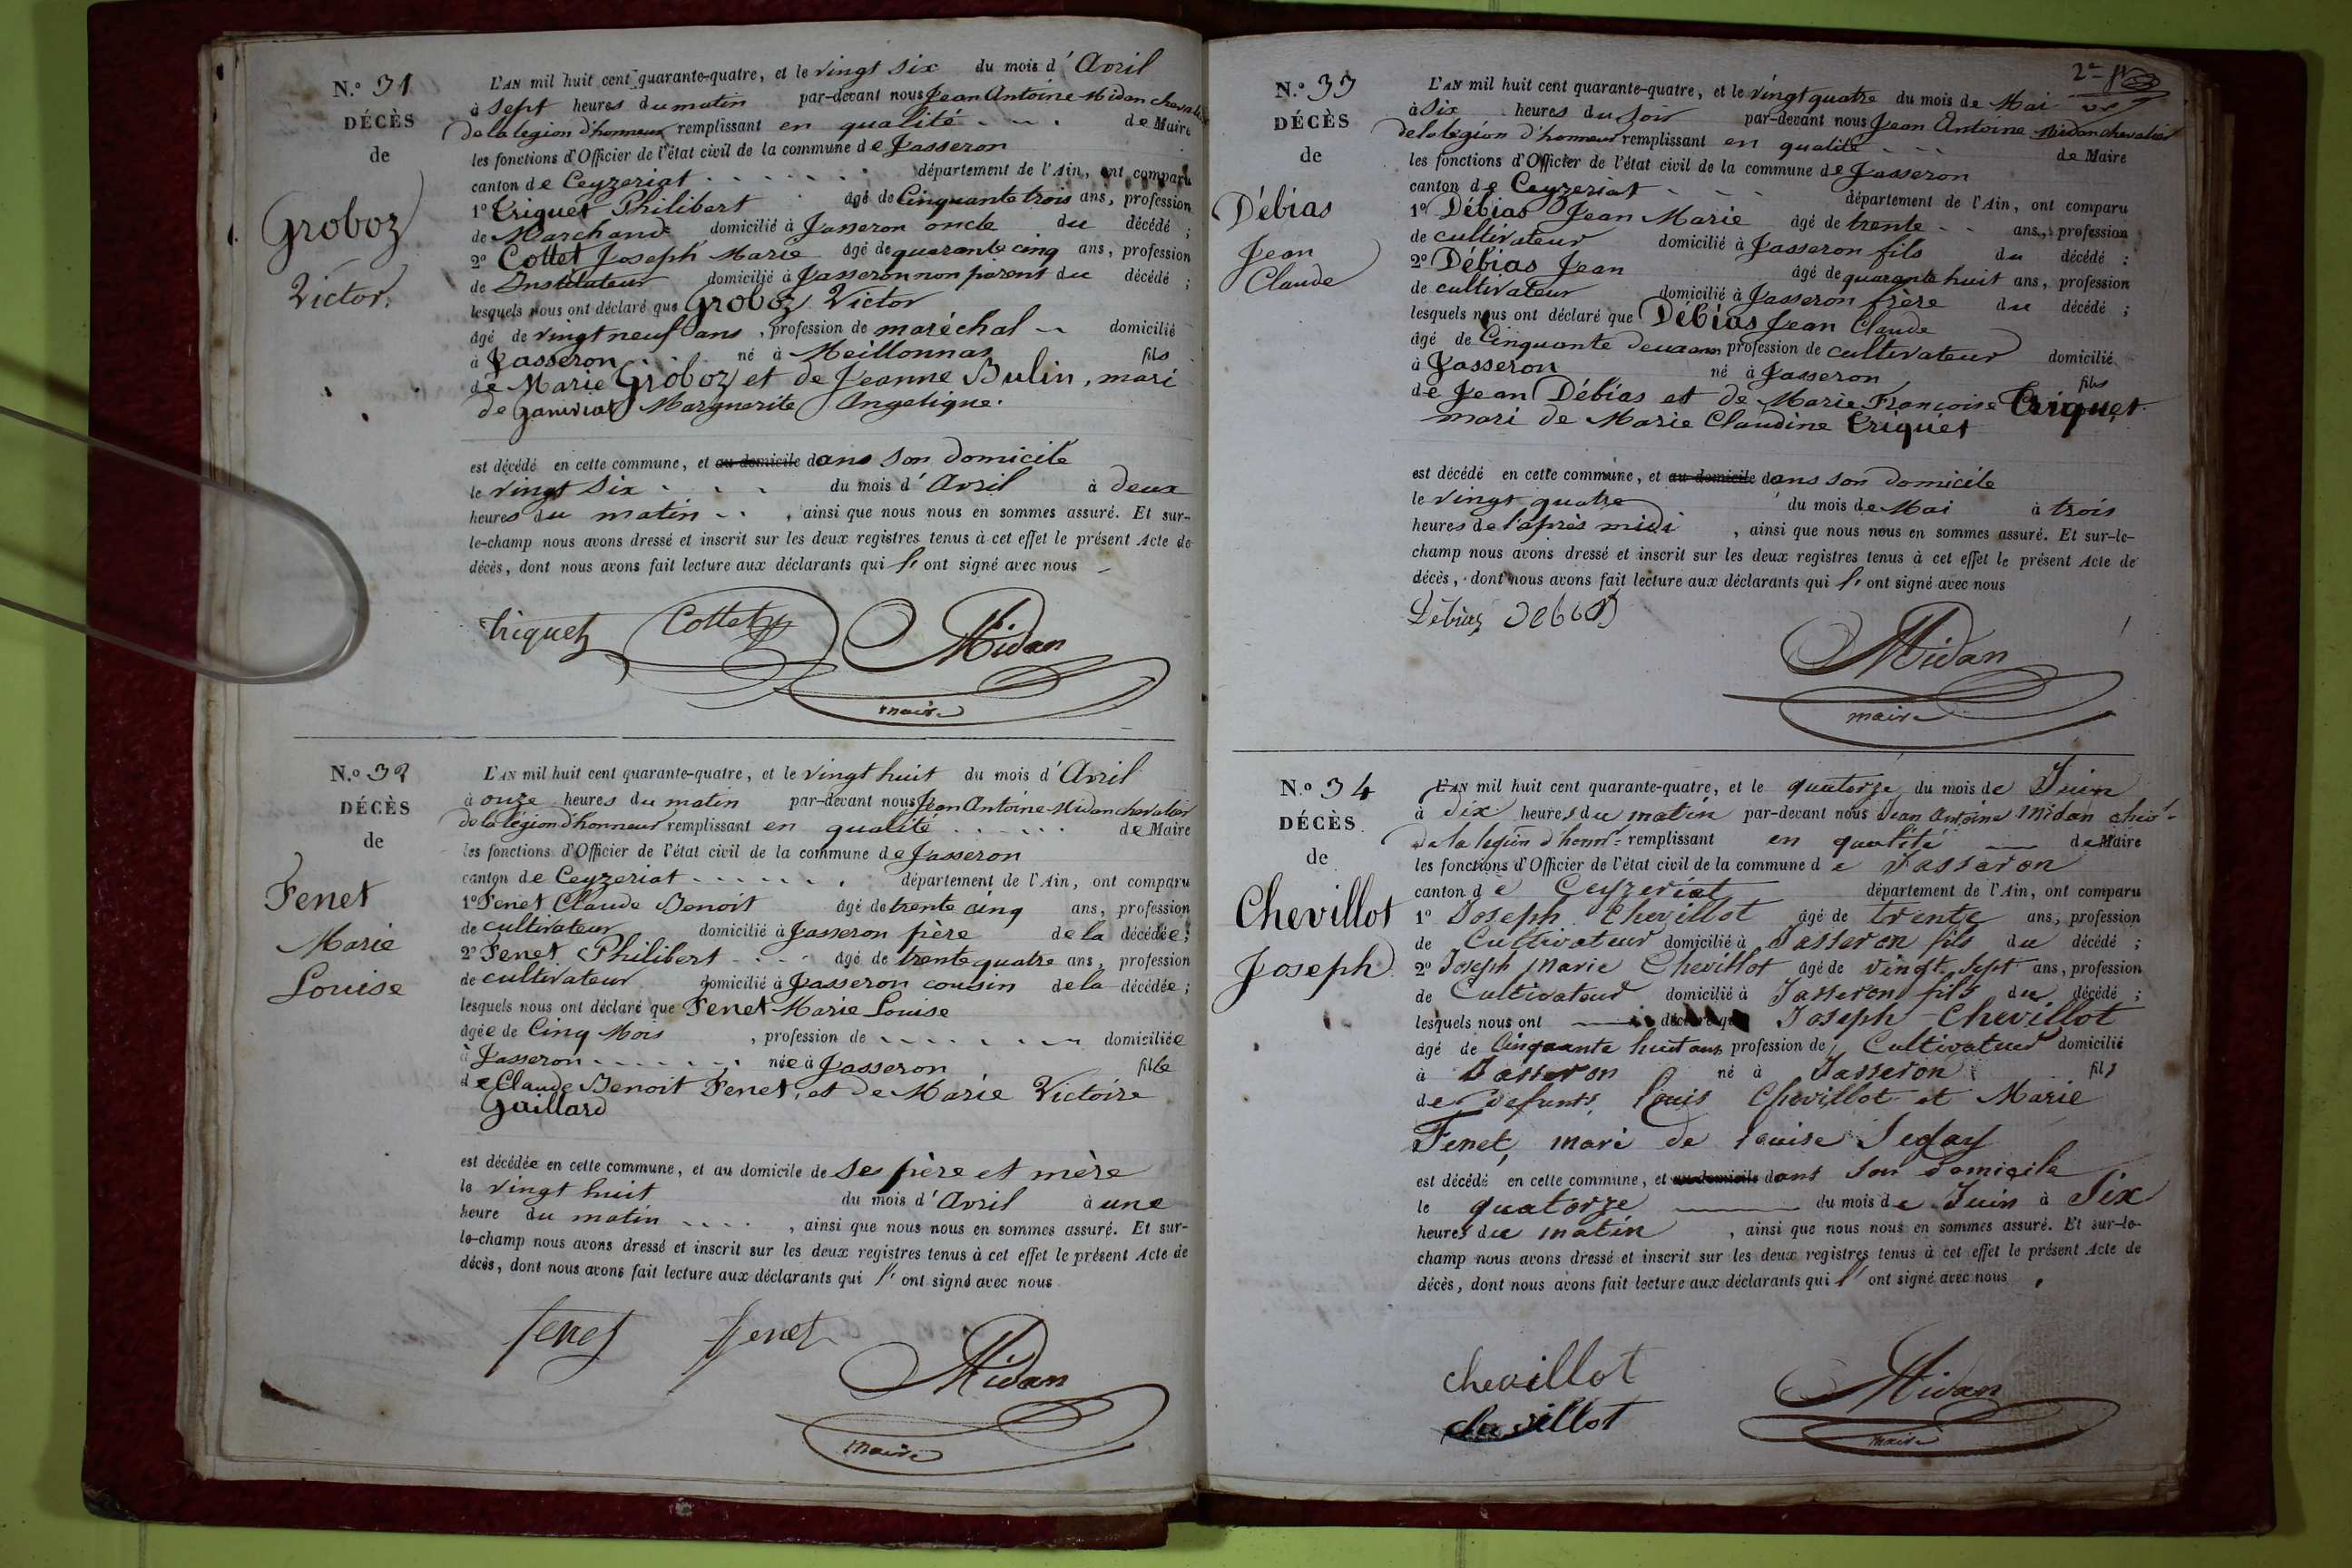 N.° 31
DÉCÈS
de
Groboz
Victor.
L'AN mil huit cent quarante-quatre, et le vingt six du mois d'Avril
à sept heures du matin par-devant nous Jean Antoine Midan chevalier
de la legion d'honneur remplissant en qualité de Maire
les fonctions d'Officier de l'état civil de la commune de Jasseron
canton de Ceyzeriat département de l'Ain, ont comparu
1° Triquet Philibert âgé de Cinquante trois ans, profession
de Marchand domicilié à Jasseron oncle du décédé ;
2° Cottet Joseph Marie âgé de quarante cinq ans, profession
de Instituteur domicilié à Jasseron non parent du décédé ;
lesquels nous ont déclaré que Groboz Victor
âgé de vingt neuf ans, profession de maréchal domicilié
à Jasseron né à Meillonnas fils
de Marie Groboz et de Jeanne Bulin, mari
de Marguerite Angelique.
est décédé en cette commune, et au domicile dans son domicile
le vingt six du mois d'Avril à deux
heures du matin, ainsi que nous nous en sommes assuré. Et sur-
le-champ nous avons dressé et inscrit sur les deux registres tenus à cet effet le présent Acte de
décès, dont nous avons fait lecture aux déclarants qui l'ont signé avec nous
Triquet Cottet Midan
maire
N.° 32
DÉCÈS
de
Fenet
Marie
Louise
L'AN mil huit cent quarante-quatre, et le vingt huit du mois d'Avril
à onze heures du matin par-devant nous Jean Antoine Midan chevalier
de la légion d'honneur remplissant en qualité de Maire
les fonctions d'Officier de l'état civil de la commune de Jasseron
canton de Ceyzeriat département de l'Ain, ont comparu
1° Fenet Claude Benoit âgé de trente cinq ans, profession
de cultivateur domicilié à Jasseron père de la décédée ;
2° Fenet Philibert âgé de trente quatre ans, profession
de cultivateur domicilié à Jasseron cousin de la décédée ;
lesquels nous ont déclaré que Fenet Marie Louise
âgée de Cinq Mois, profession de domiciliée
à Jasseron née à Jasseron fille
de Claude Benoit Fenet, et de Marie Victoire
Gaillard
est décédée en cette commune, et au domicile de ses père et mère
le vingt huit du mois d'Avril à une
heure du matin, ainsi que nous nous en sommes assuré. Et sur-
le-champ nous avons dressé et inscrit sur les deux registres tenus à cet effet le présent Acte de
décès, dont nous avons fait lecture aux déclarants qui l'ont signé avec nous
fenet fenet Midan
maire
2e
N.° 33
DÉCÈS
de
Débias
Jean
Claude
L'AN mil huit cent quarante-quatre, et le vingt quatre du mois de Mai
à six heures du soir par-devant nous Jean Antoine Midan chevalier
de la légion d'honneur remplissant en qualité de Maire
les fonctions d'Officier de l'état civil de la commune de Jasseron
canton de Ceyzeriat département de l'Ain, ont comparu
1° Débias Jean Marie âgé de trente ans, profession
de cultivateur domicilié à Jasseron fils du décédé ;
2° Débias Jean âgé de quarante huit ans, profession
de cultivateur domicilié à Jasseron frère du décédé ;
lesquels nous ont déclaré que Débias Jean Claude
âgé de Cinquante deux ans profession de cultivateur domicilié
à Jasseron né à Jasseron fils
de Jean Débias et de Marie Françoise Triquet
mari de Marie Claudine Triquet
est décédé en cette commune, et au domicile dans son domicile
le vingt quatre du mois de Mai à trois
heures de l'après midi, ainsi que nous nous en sommes assuré. Et sur-le-
champ nous avons dressé et inscrit sur les deux registres tenus à cet effet le présent Acte de
décès, dont nous avons fait lecture aux déclarants qui l'ont signé avec nous
Débias Debias
Midan
maire
N.° 34
DÉCÈS
de
Chevillot
Joseph
L'AN mil huit cent quarante-quatre, et le quatorze du mois de Juin
à dix heures du matin par-devant nous Jean Antoine Midan chevr
de la legion d'honr remplissant en qualité de Maire
les fonctions d'Officier de l'état civil de la commune de Jasseron
canton de Ceyzeriat département de l'Ain, ont comparu
1° Joseph Chevillot âgé de trente ans, profession
de Cultivateur domicilié à Jasseron fils du décédé ;
2° Joseph Marie Chevillot âgé de vingt-sept ans, profession
de Cultivateur domicilié à Jasseron fils du décédé ;
lesquels nous ont déclaré que Joseph Chevillot
âgé de Cinquante huit ans profession de Cultivateur domicilié
à Jasseron né à Jasseron fils
de défunts Louis Chevillot et Marie
Fenet, mari de Louise
est décédé en cette commune, et au domicile dans son domicile
le quatorze du mois de Juin à Six
heures du matin, ainsi que nous nous en sommes assuré. Et sur-le-
champ nous avons dressé et inscrit sur les deux registres tenus à cet effet le présent Acte de
décès, dont nous avons fait lecture aux déclarants qui l'ont signé avec nous,
chevillot Midan
chevillot maire